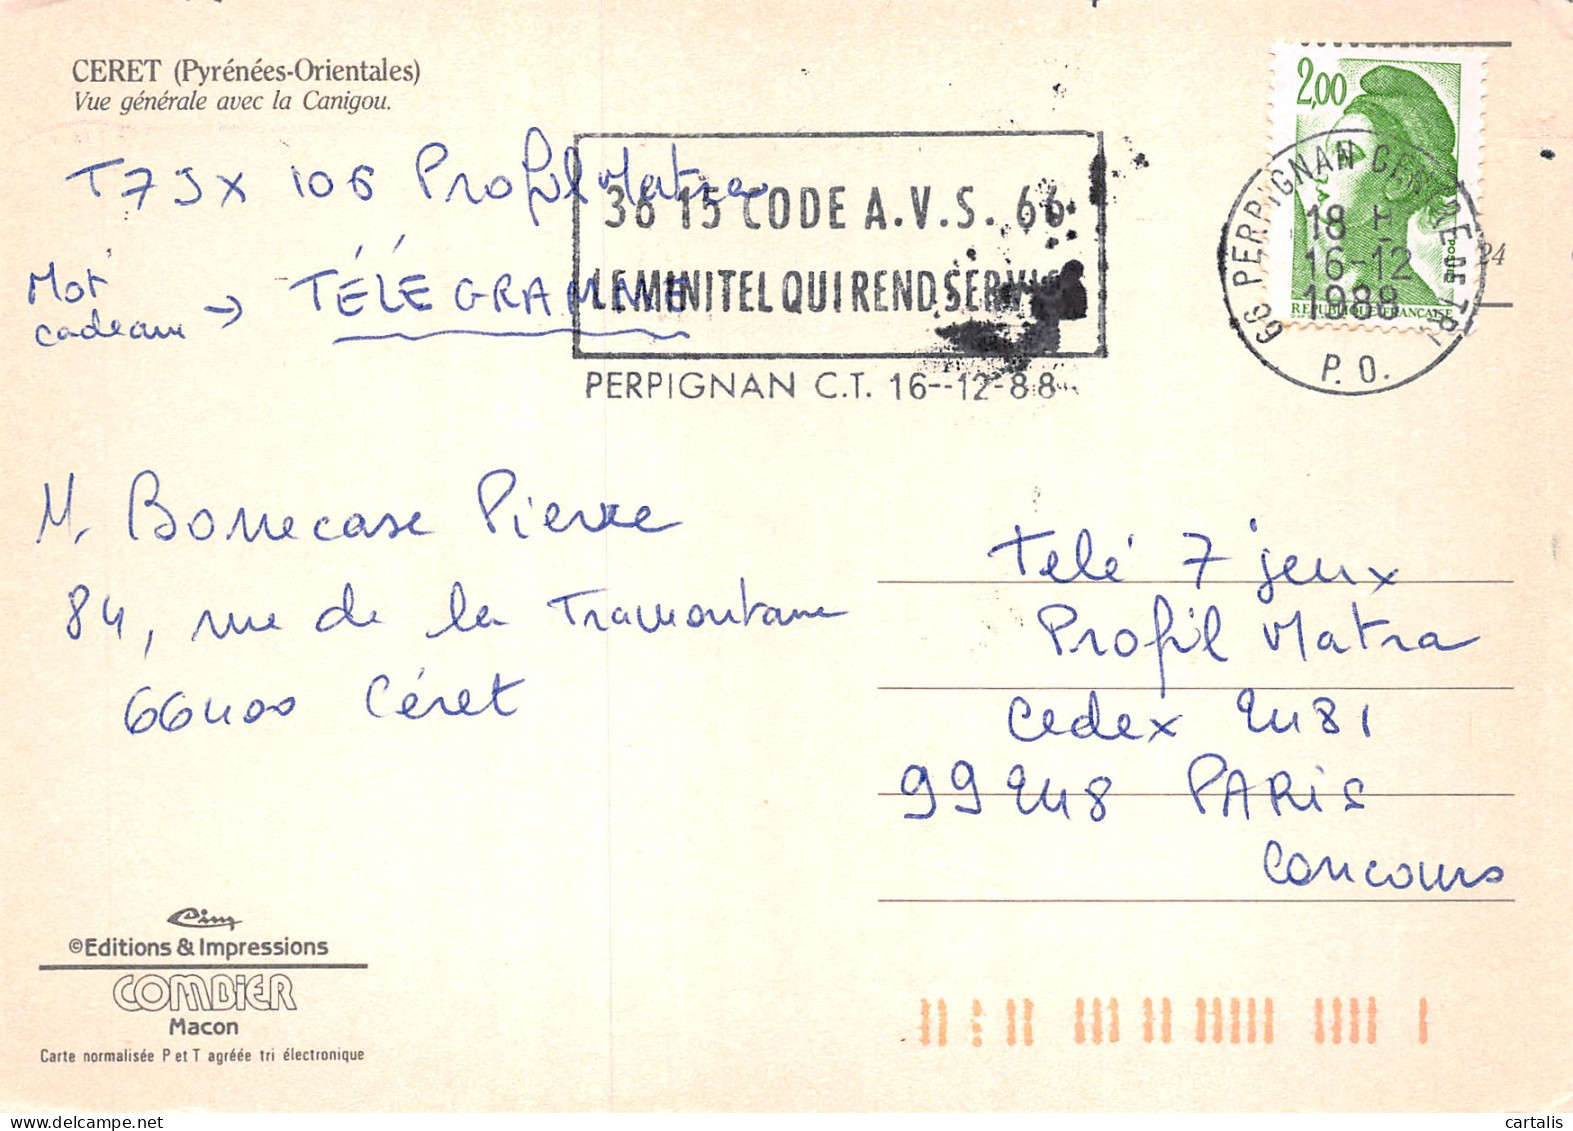 CERET (Pyrénées-Orientales)
Vue générale avec la Canigou.
T7JX 106 Profil Matra
Mot cadeau → TÉLÉGRAMME
36 15 CODE A.V.S. 66
LE MINITEL QUI REND SERVICE
PERPIGNAN C.T. 16-12-88
2,00
POSTES
REPUBLIQUE FRANÇAISE
66 PERPIGNAN CENTRE DE TRI
18 H
16-12
1988
P. O.
24
M. Bonnecase Pierre
84, rue de la Tramontane
66400 Céret
Télé 7 jeux
Profil Matra
Cedex 2481
99248 PARIS
Concours
Cim
©Editions & Impressions
COMBIER
Macon
Carte normalisée P et T agréée tri électronique
cartalis